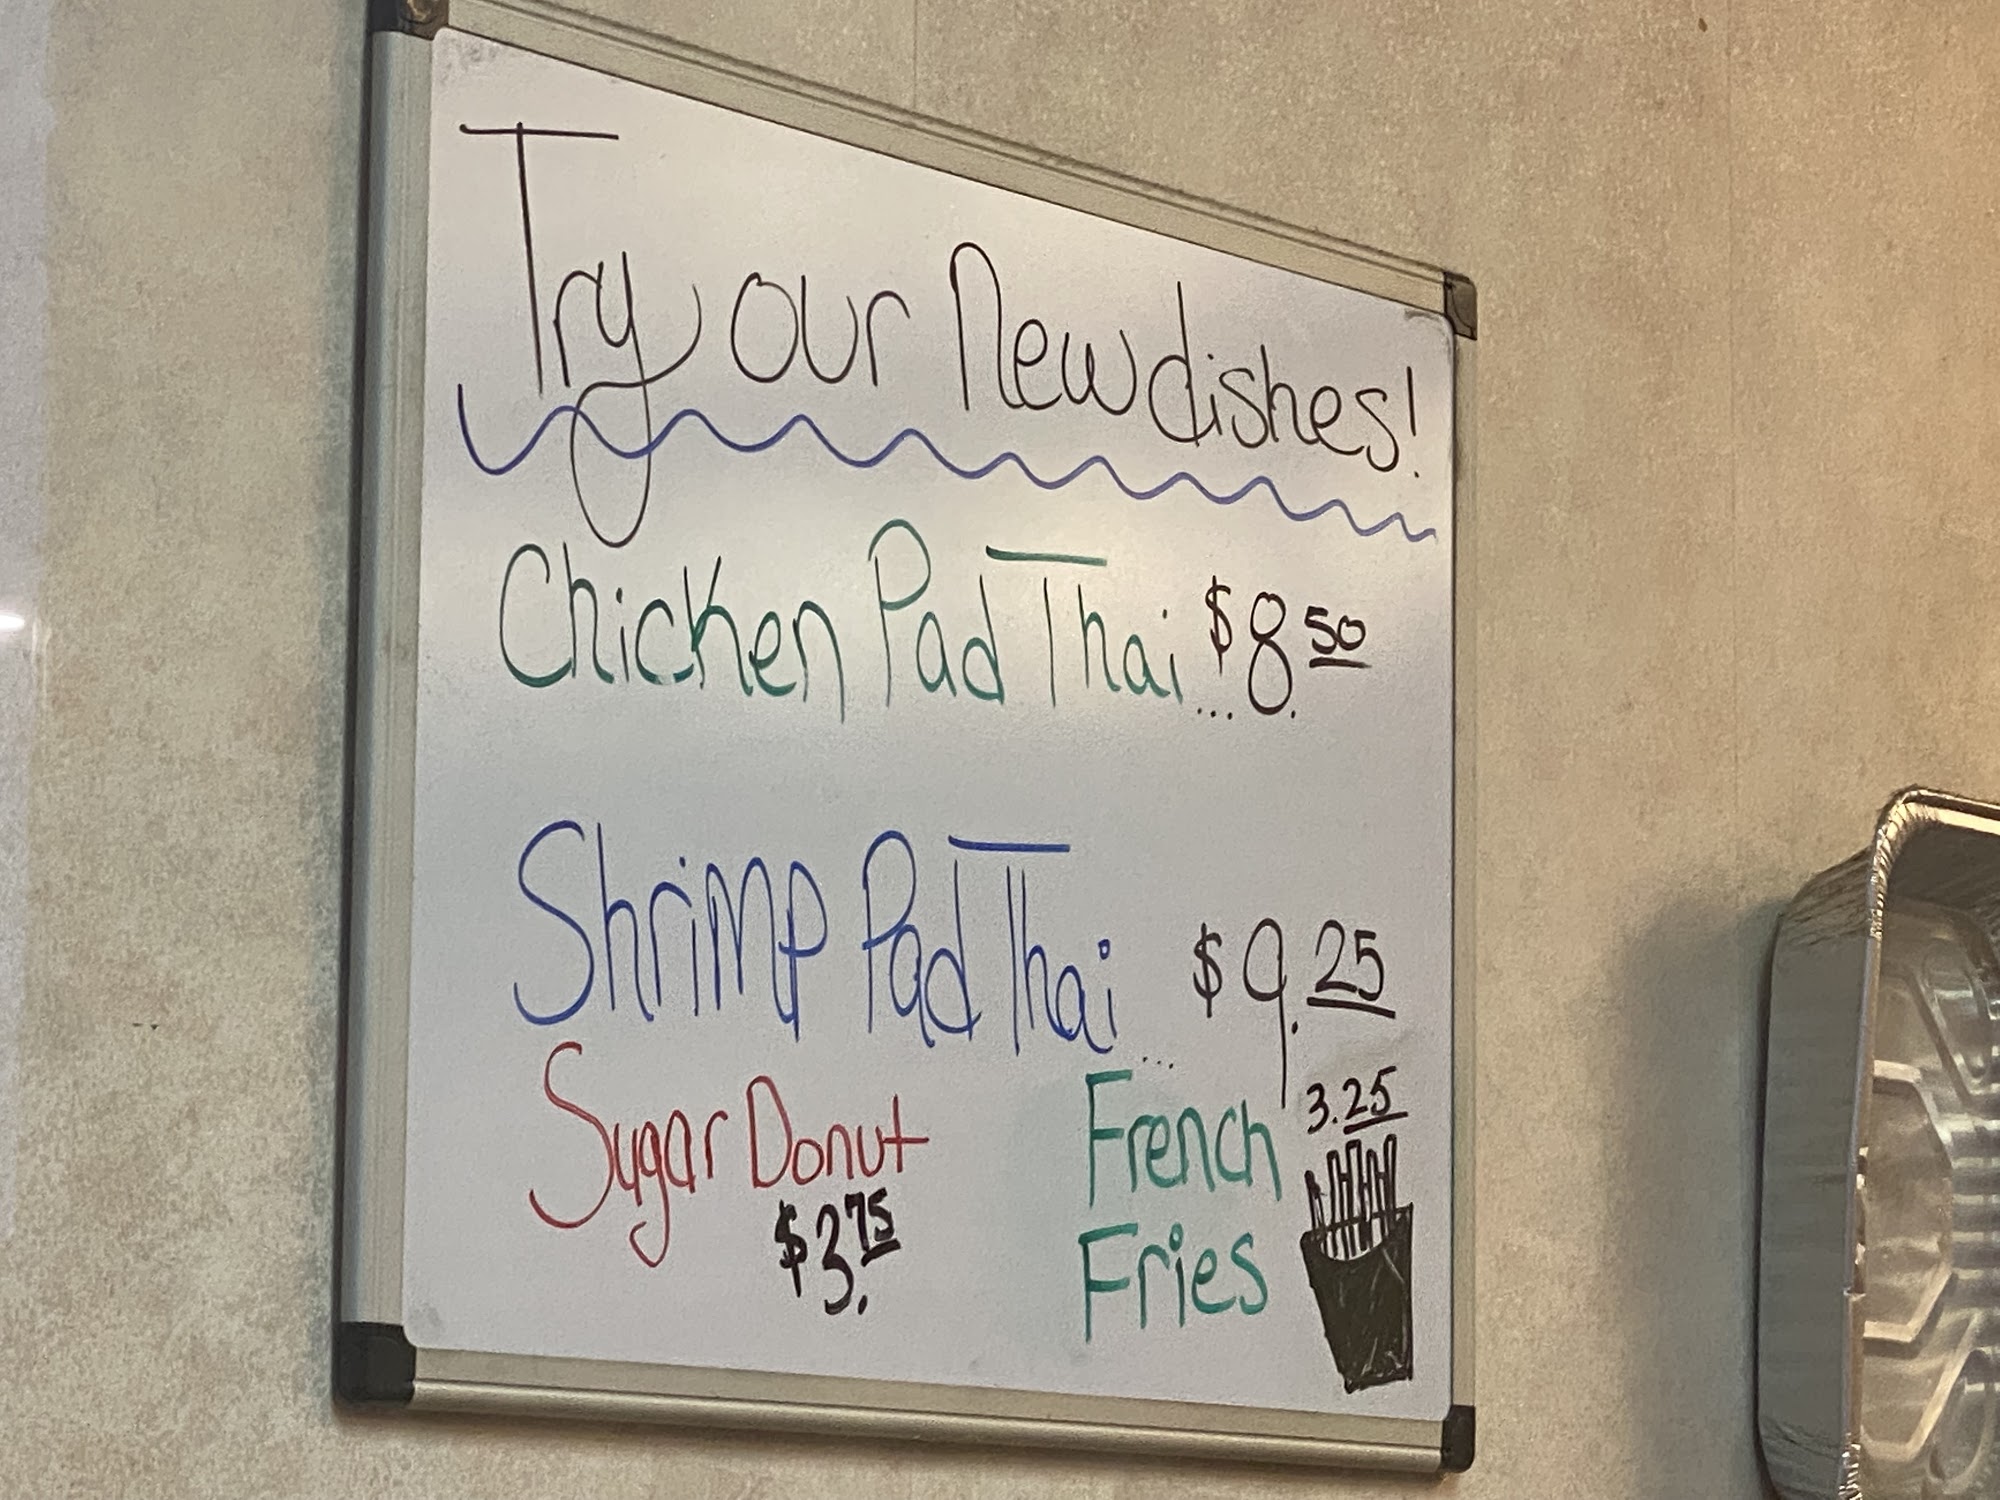 Try our New dishes!
Chicken Pad Thai... $8.50
Shrimp Pad Thai... $9.25
Sugar Donut
$3.75
French 3.25
Fries